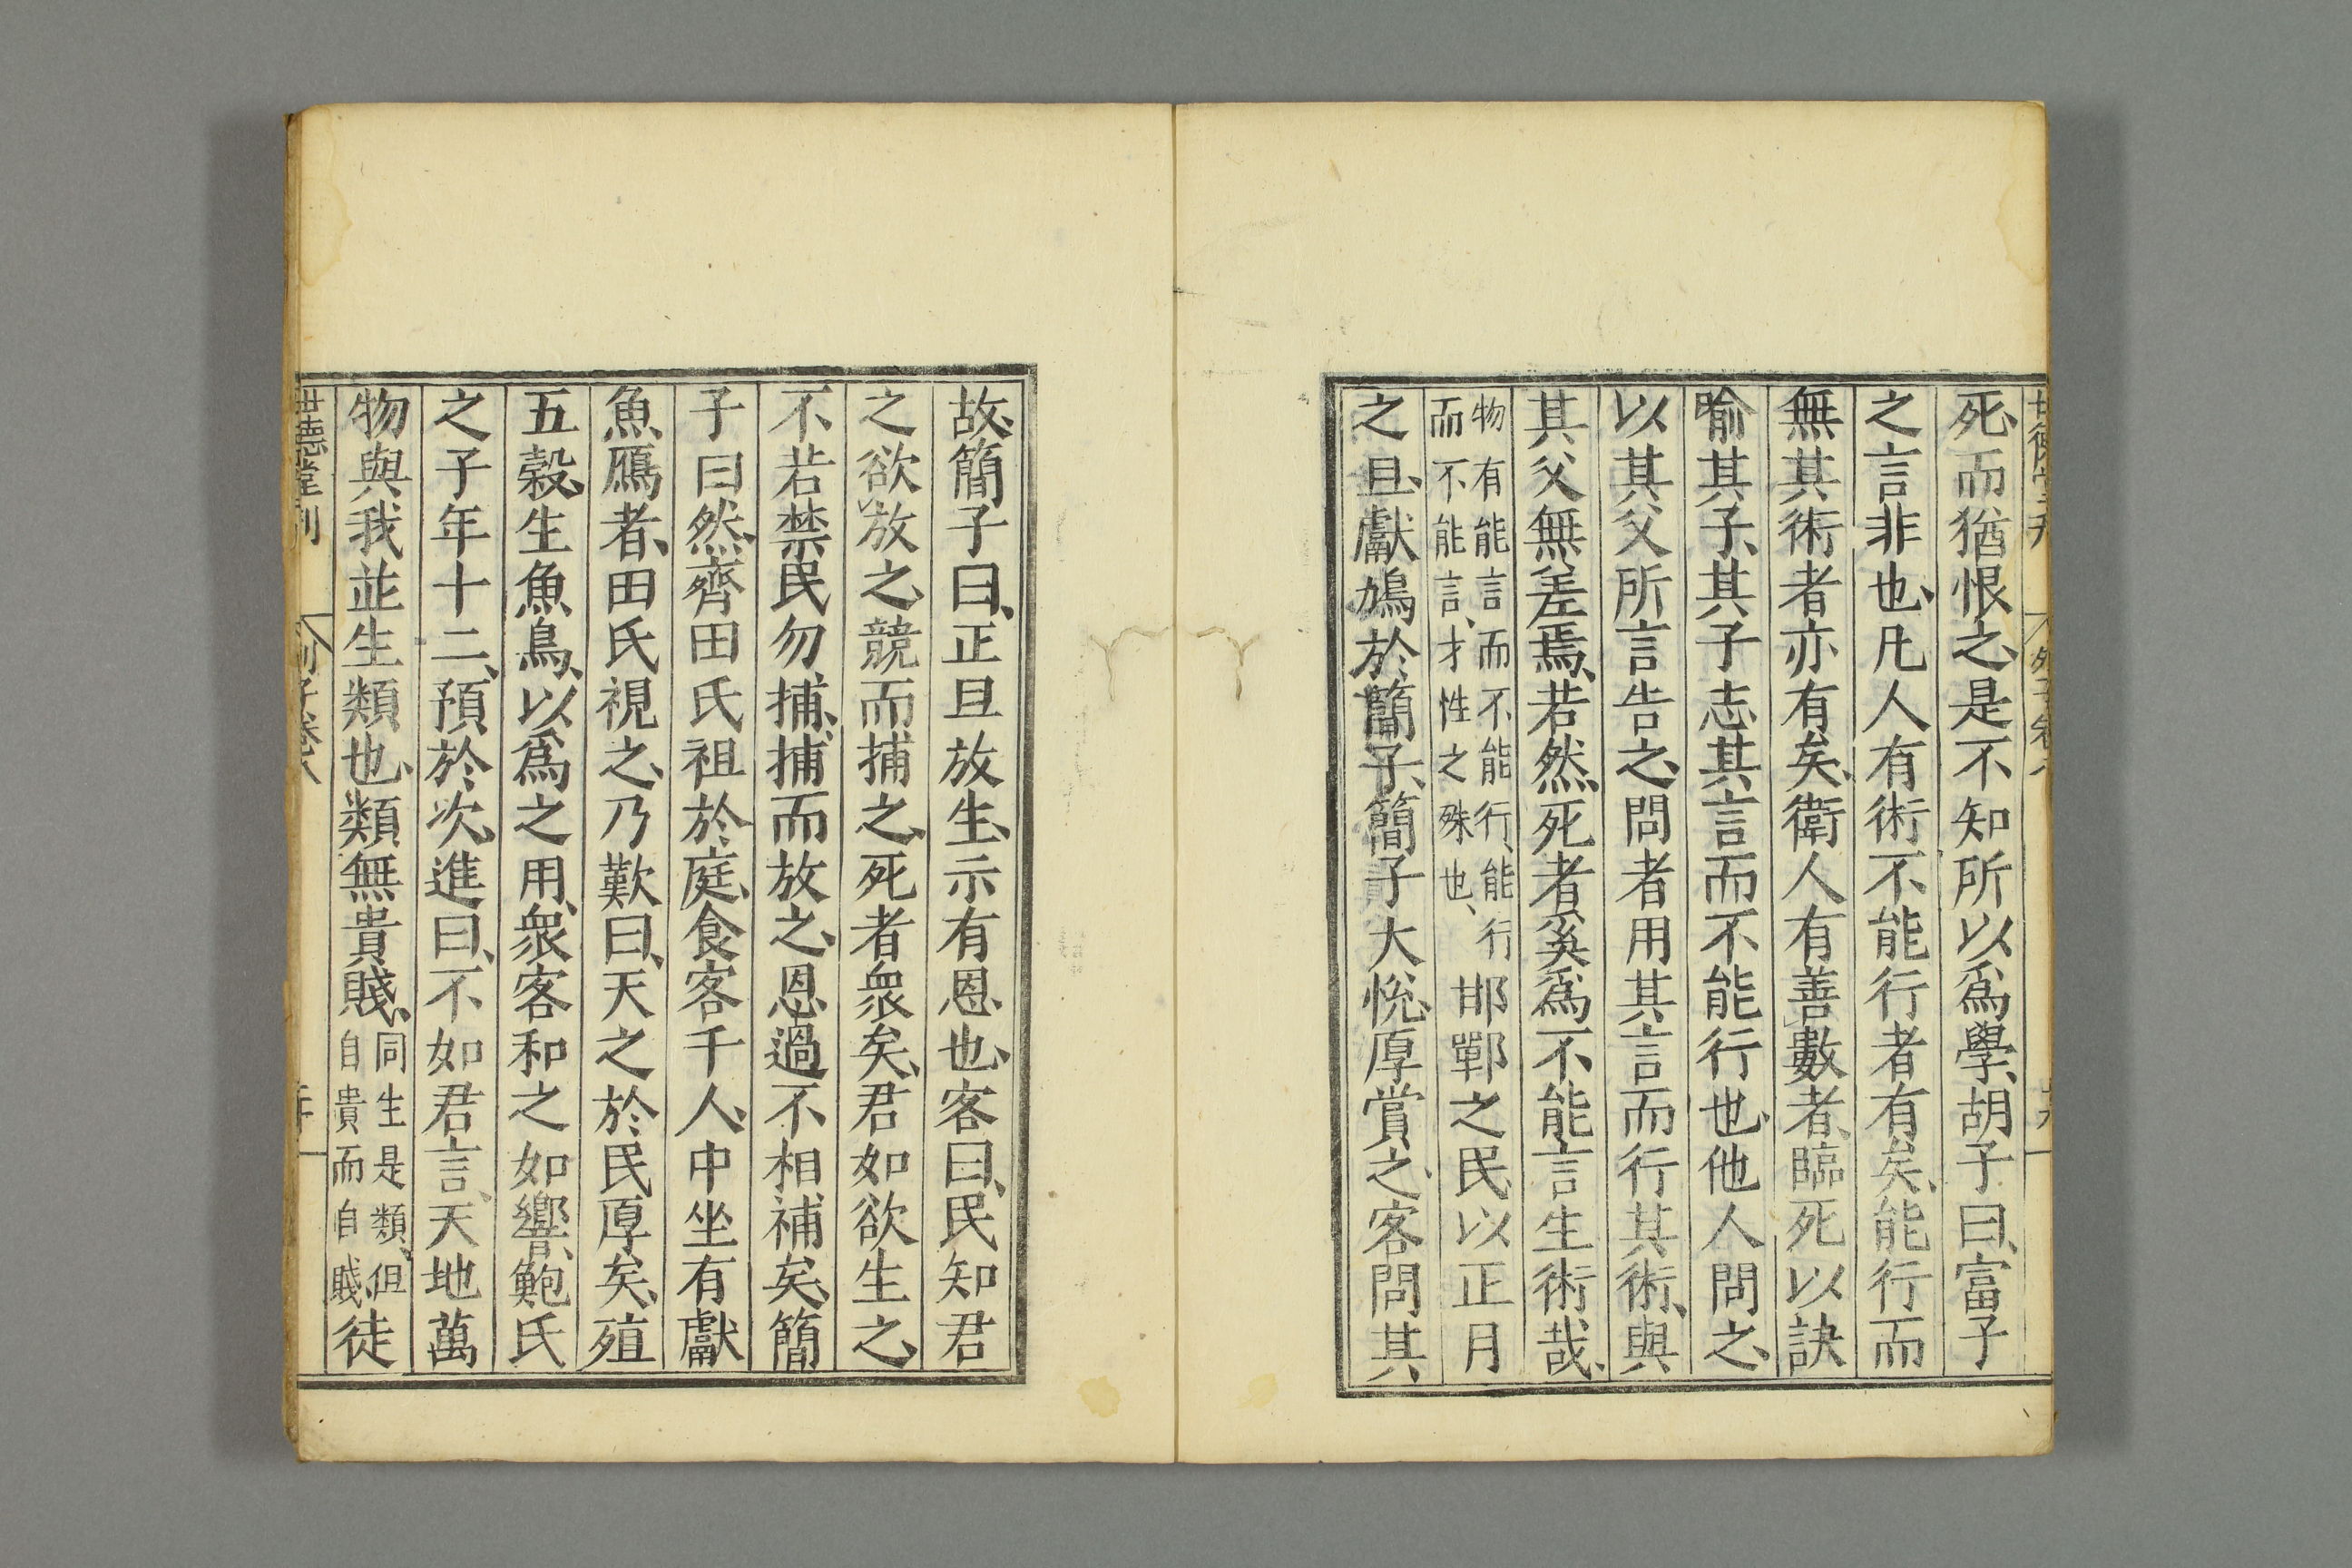 死、而猶恨之、是不知所以爲學、胡子曰、富子
之言非也、凡人有術不能行者有矣、能行而
無其術者亦有矣、衛人有善數者、臨死以訣
喻其子、其子志其言而不能行也、他人問之、
以其父所言告之、問者用其言而行其術、與
其父無差焉、若然、死者奚爲不能言生術哉、
物有能言而不能行、能行
而不能言、才性之殊也、
邯鄲之民、以正月
之旦、獻鳩於簡子、簡子大悅、厚賞之、客問其
故、簡子曰、正旦放生、示有恩也、客曰、民知君
之欲放之、競而捕之、死者衆矣、君如欲生之、
不若禁民勿捕、捕而放之、恩過不相補矣、簡
子曰然、齊田氏祖於庭、食客千人、中坐有獻
魚鴈者、田氏視之、乃歎曰、天之於民厚矣、殖
五穀、生魚鳥、以爲之用、衆客和之如響、鮑氏
之子年十二、預於次、進曰、不如君言、天地萬
物與我並生類也、類無貴賤、
同生是類、但
自貴而自賤、
徒
世德堂刊